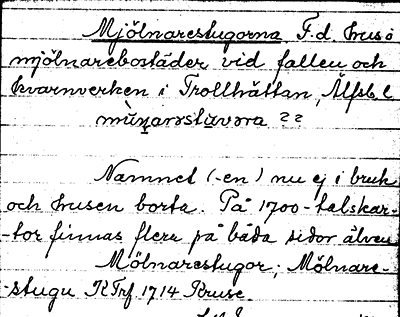 Mjölnarestugorna F.d. hus o
mjölnarebostäder vid fallen och
kvarnverken i Trollhättan, Älfsb. l
mùnarəstùvəra ??
Namnet (-en) nu ej i bruk
och husen borta. På 1700-talskar-
-tor finnas flera på båda sidor älven
Mölnarestugor; Mölnare-
-stugu KTrf 1714 Kruse.